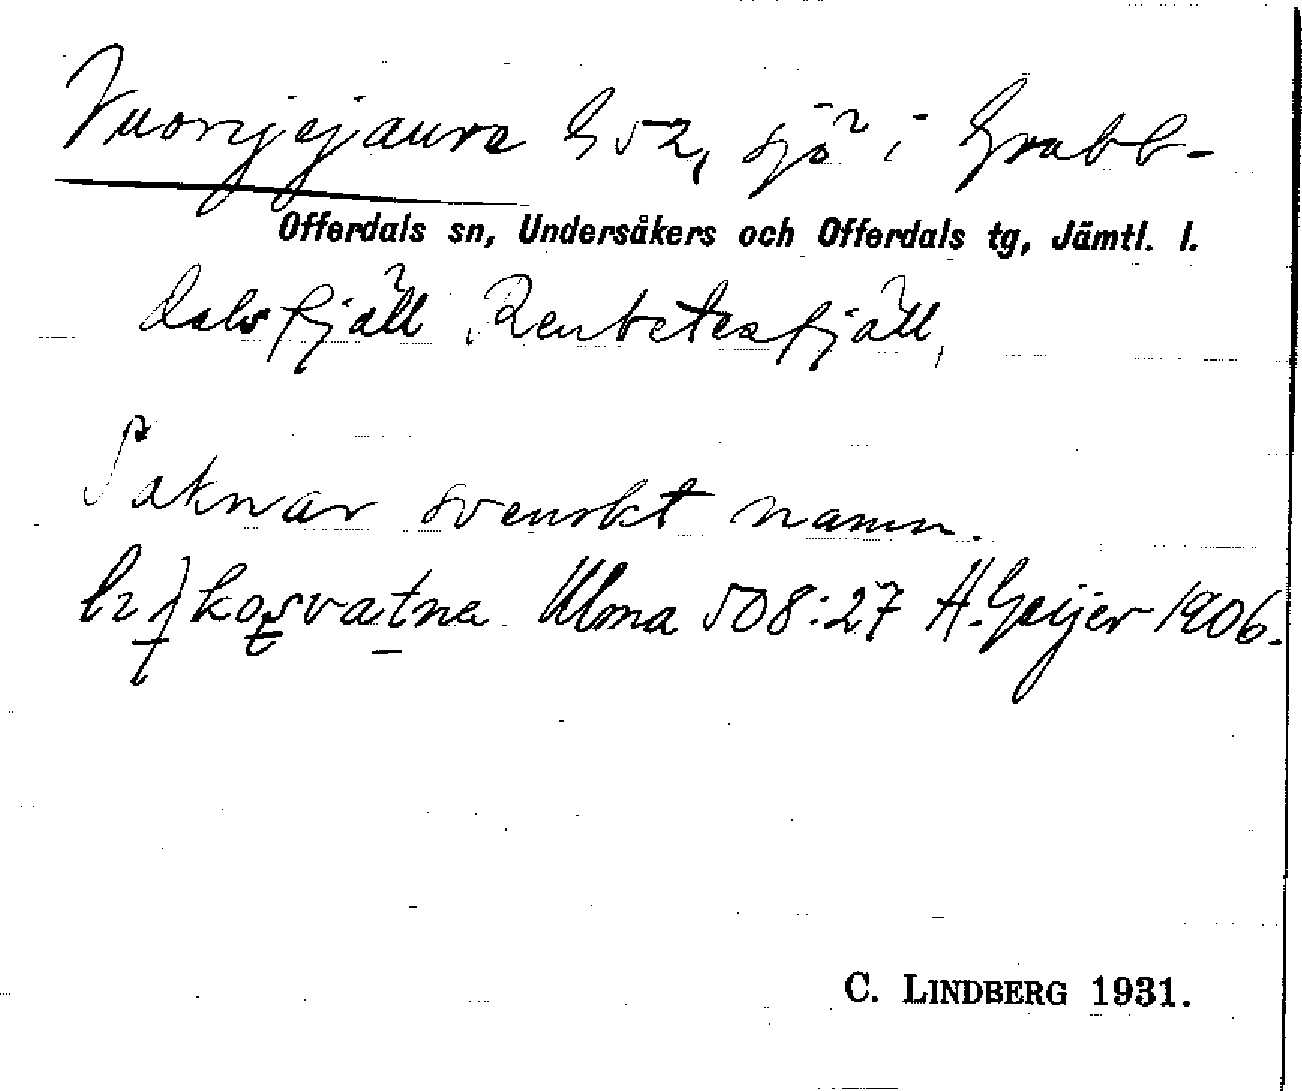 Vuongejaure G 52, sjö i Grabb-
Offerdals sn, Undersåkers och Offerdals tg, Jämtl. l.
dalsfjäll. Renbetesfjäll,
Saknar svenskt namn.
Ulma 508:27 H. Geijer 1906.
C. LINDBERG 1931.